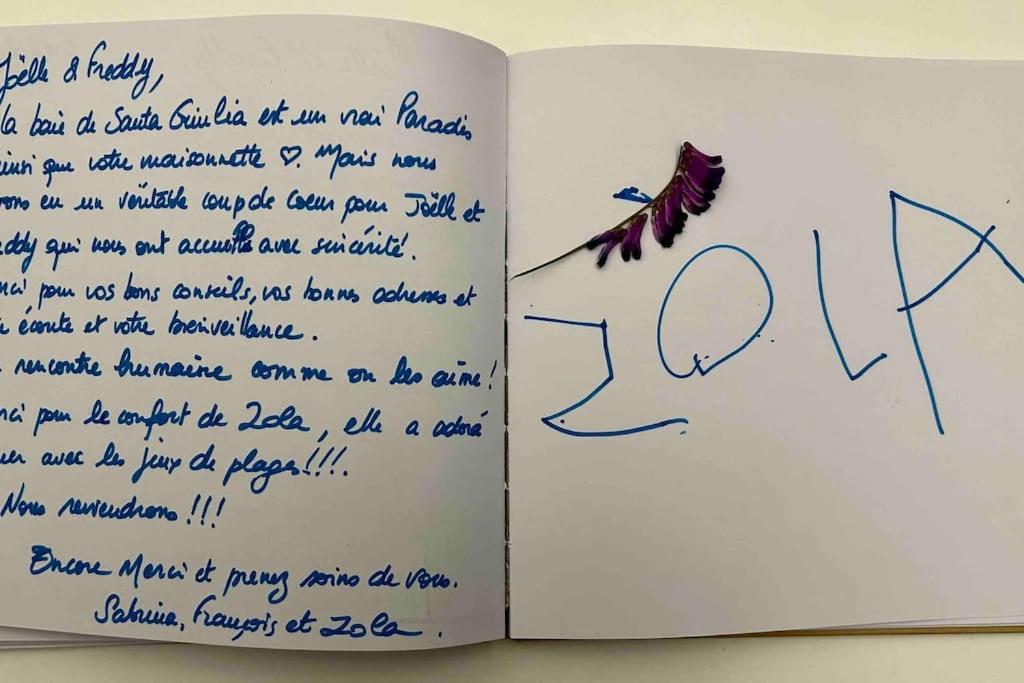 Joëlle & Freddy,
la baie de Santa Giulia est un vrai Paradis
ainsi que votre maisonnette ♡. Mais nous
vons eu un véritable coup de coeur pour Joëlle et
eddy qui nous ont accueilli avec sincérité.
rci pour vos bons conseils, vos bonnes adresses et
écoute et votre bienveillance.
rencontre humaine comme on les aime!
rci pour le confort de Zola, elle a adoré
uer avec les jeux de plages!!!!
Nous reviendrons!!!
Encore Merci et prenez soins de vous.
Sabrina, François et Zola.
ZOLA